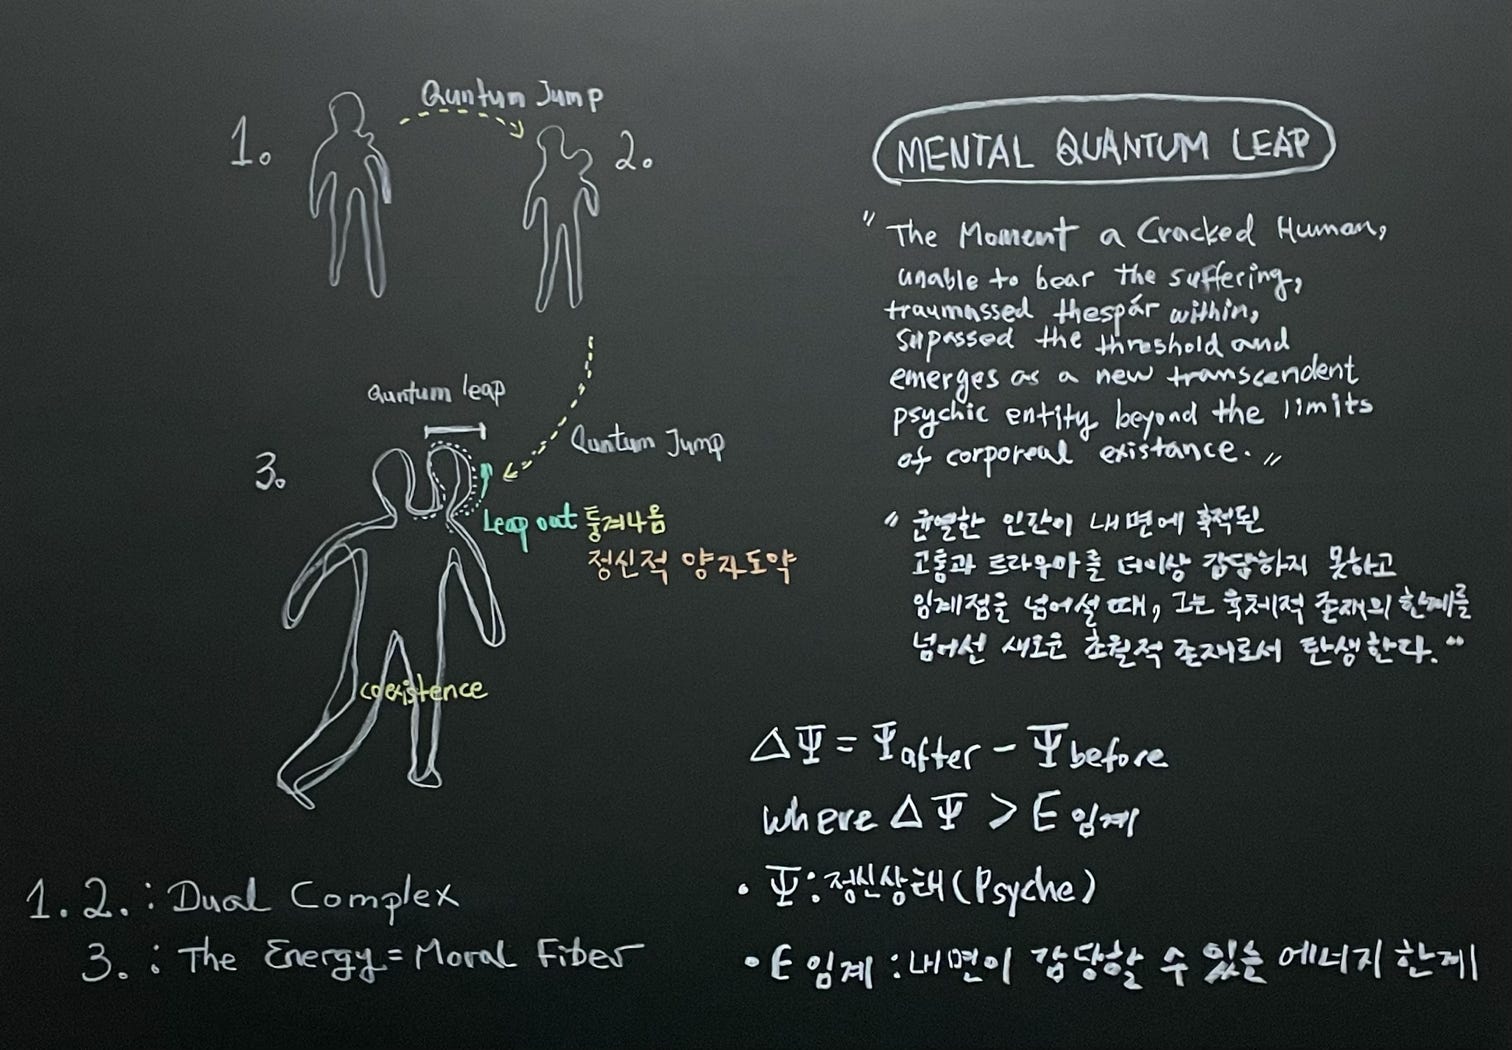 1.
Quntum Jump
2.
Quntum leap
3.
Quntum Jump
Leap out 튕겨나옴
정신적 양자도약
coexistence
1. 2. : Dual Complex
3. : The Energy = Moral Fiber
MENTAL QUANTUM LEAP
"The Moment a Cracked Human,
unable to bear the suffering,
traumassed thespár within,
supassed the threshold and
emerges as a new transcendent
psychic entity beyond the limits
of corporeal existance."
"균열한 인간이 내면에 축적된
고통과 트라우마를 더이상 감당하지 못하고
임계점을 넘어설 때, 그는 육체적 존재의 한계를
넘어선 새로운 초월적 존재로서 탄생한다."
△Ψ = Ψafter - Ψbefore
where △Ψ > E임계
• Ψ : 정신상태 (Psyche)
• E임계 : 내면이 감당할 수 있는 에너지 한계